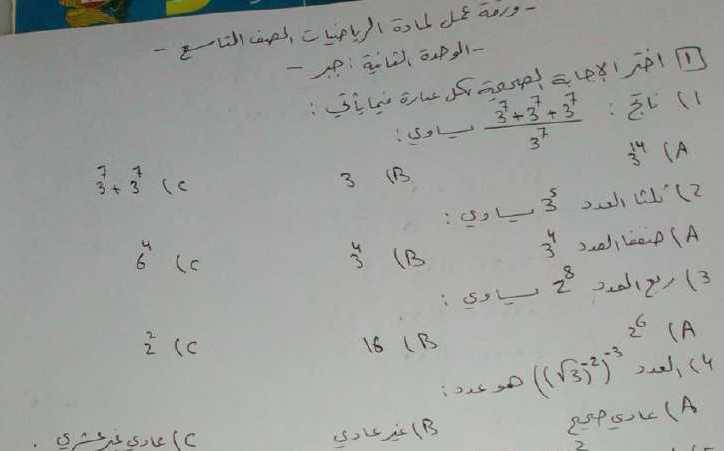 - ورقة عمل لمادة الرياضيات الصف التاسع -
- الوحدة الثانية : جبر -
1 اختر الإجابة الصحيحة لكل عبارة فيما يأتي :
1) ناتج : (3^7 + 3^7 + 3^7) / 3^7 يساوي :
A) 3^14 B) 3 C) 3^7 + 3^7
2) ثلثا العدد 3^5 يساوي :
A) ضعفا العدد 3^4 B) 3^4 C) 6^4
3) ربع العدد 2^8 يساوي :
A) 2^6 B) 16 C) 2^2
4) العدد ((√3)^-2)^-3 هو عدد :
A) عادي صحيح B) غير عادي C) عادي غير عشري .